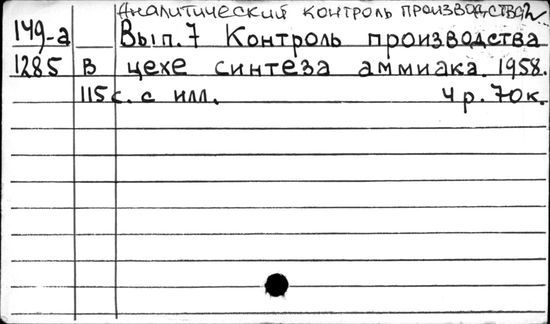 Аналитический контроль производства
149-а Вып. 7 Контроль производства
1285 в цехе синтеза аммиака. 1958.
115 с. с илл. 4 р. 70 к.